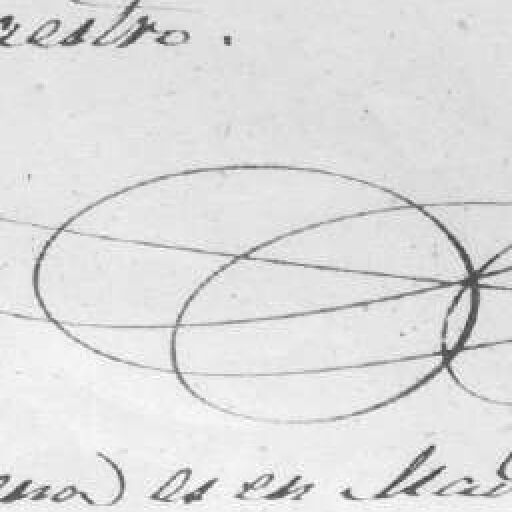 estro.
eno) es en Mad